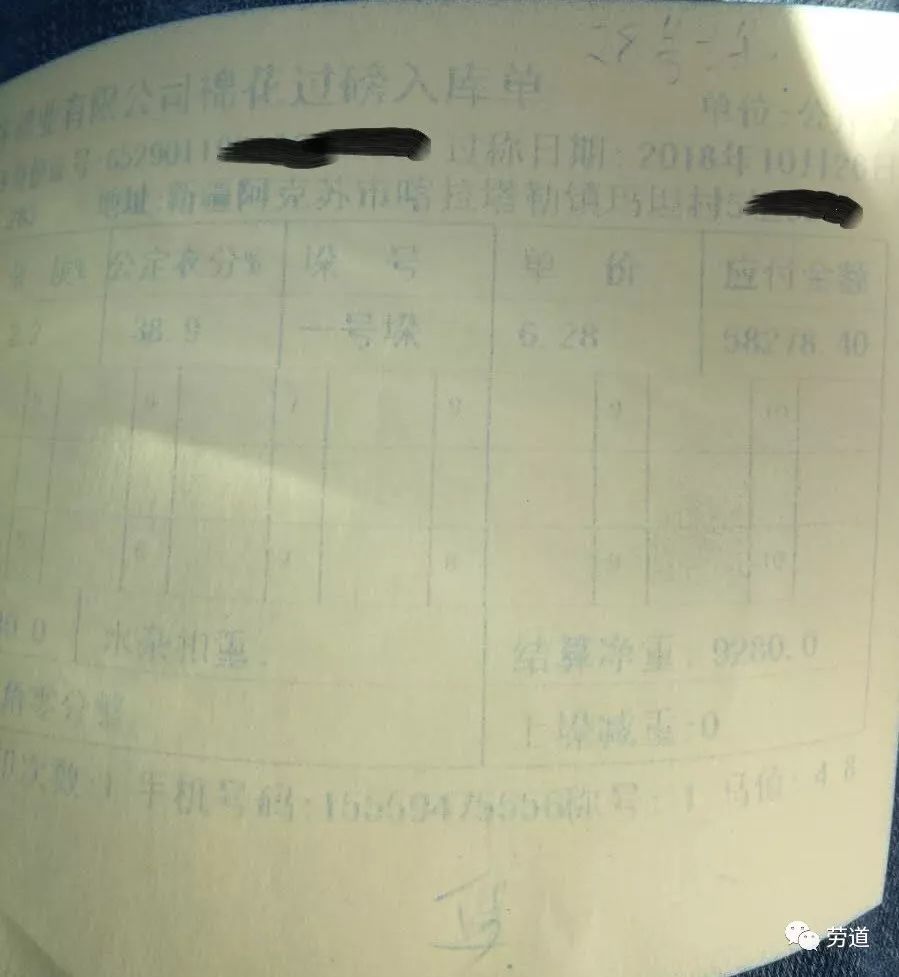 业有限公司棉花过磅入库单
单位:公
号:6529011
过称日期:2018年10月26日
地址:新疆阿克苏市喀拉塔勒镇玛
村5
公定衣分% 垛 号 单 价 应付金额
2.2 38.9 一号垛 6.28 58278.40
5 6 7 8 9 10
5 6 7 8 9 10
80.0 水杂扣重: 结算净重:9280.0
角零分整 上垛减重:0
印次数:1 手机号码:15559475556 称号:1 马值:4.8
劳道